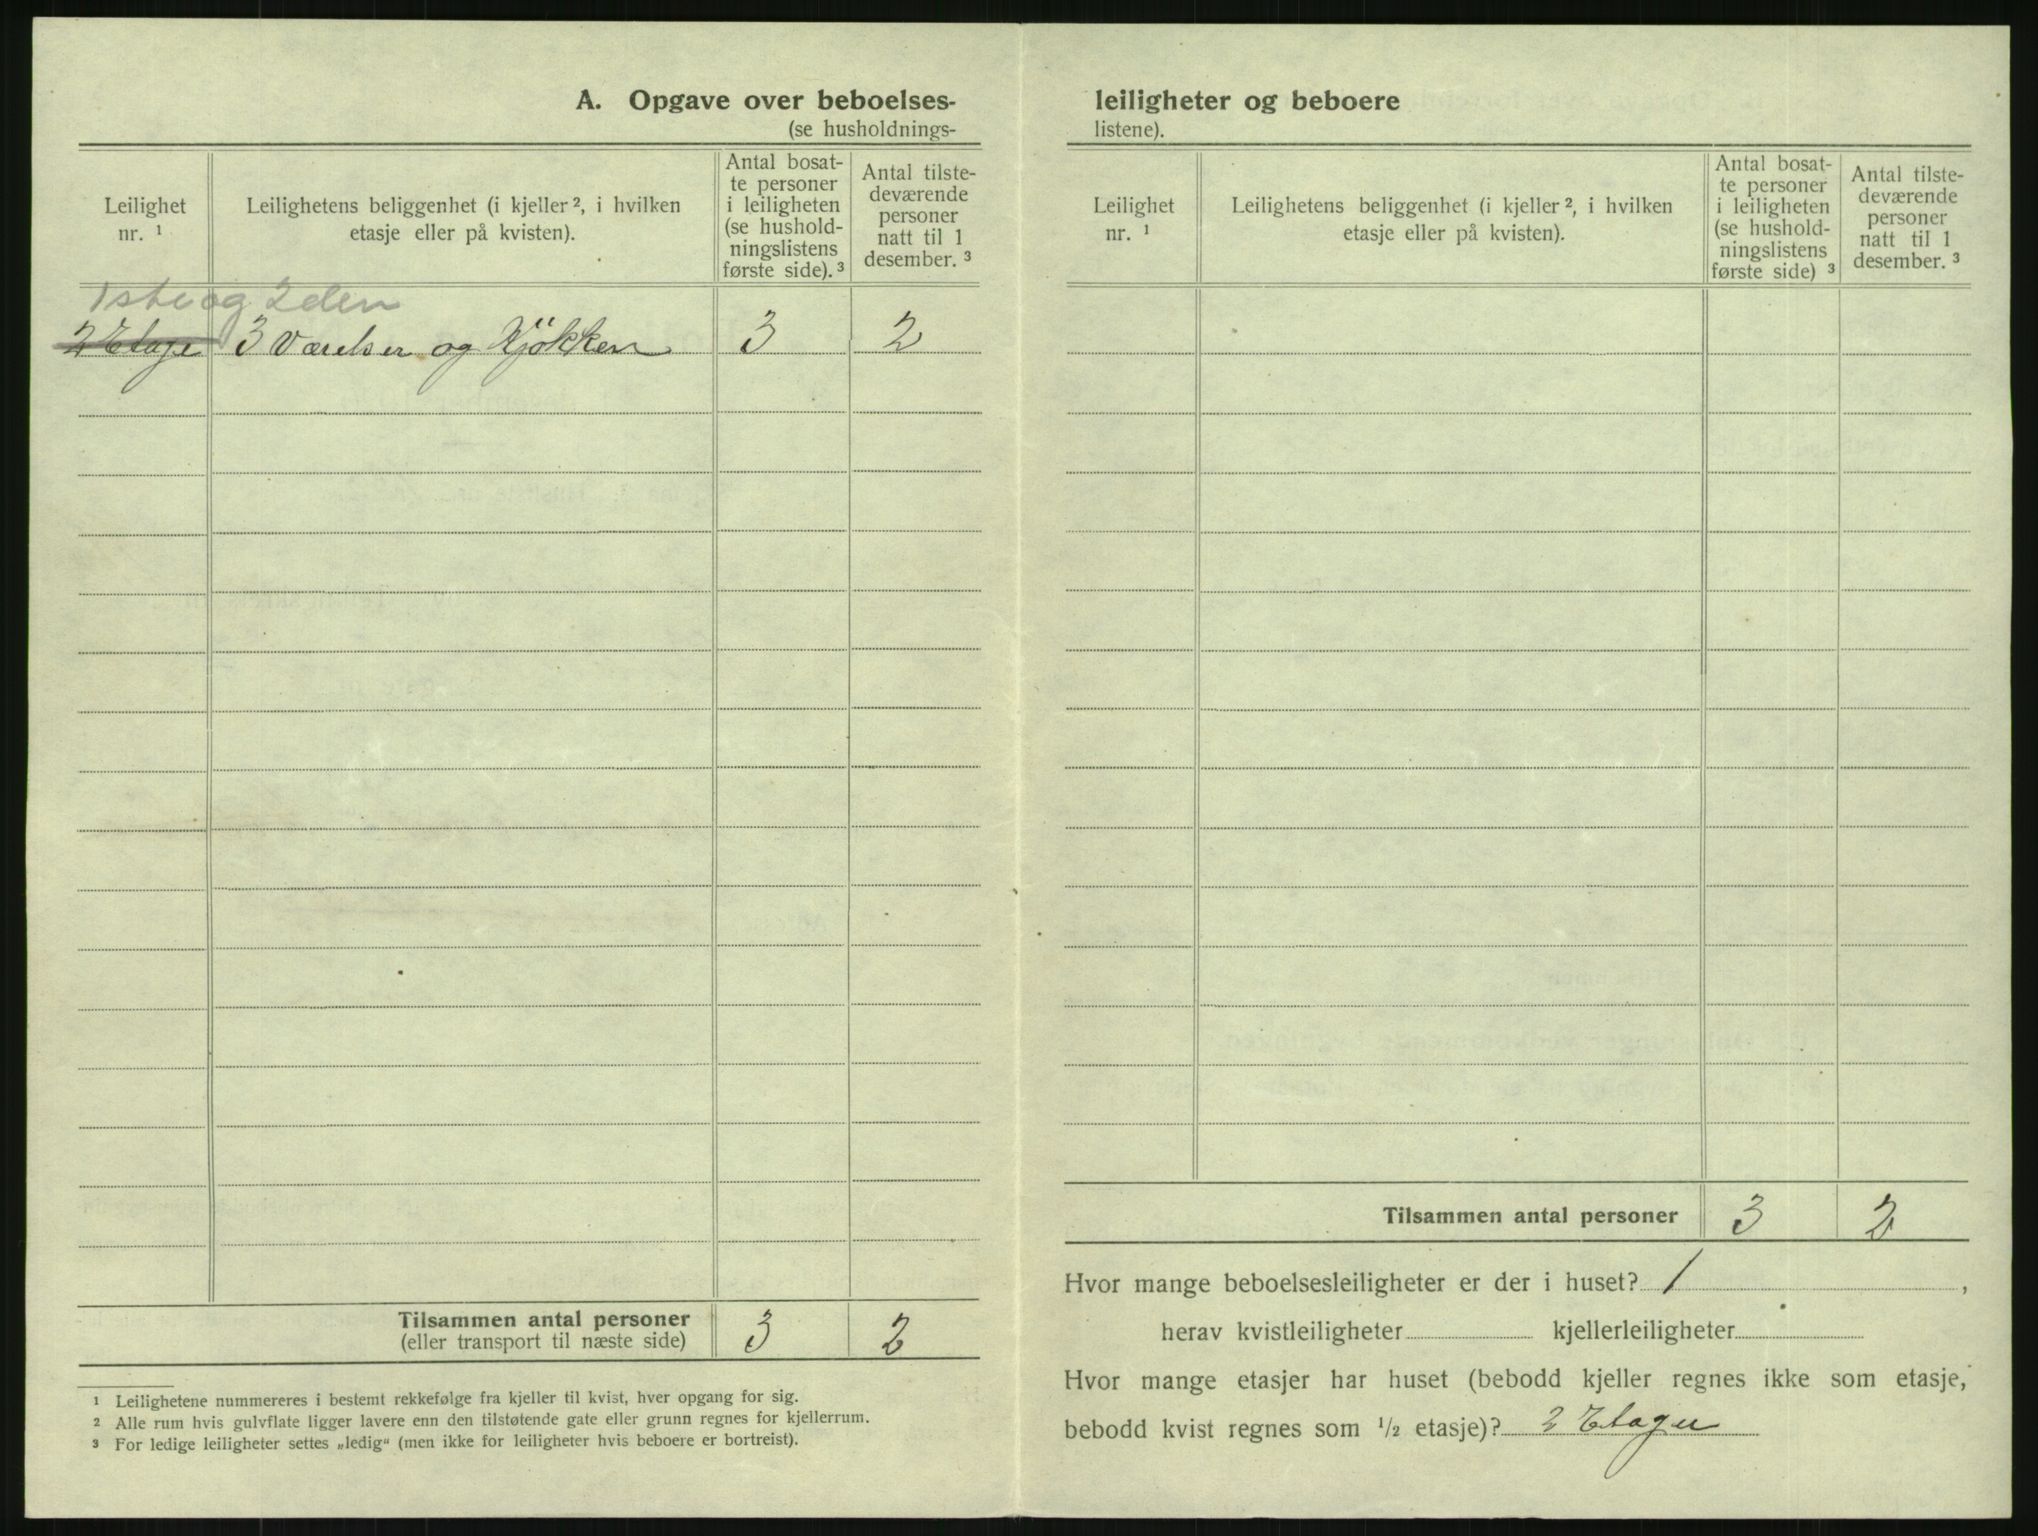 A. Opgave over beboelses-
(se husholdnings-
Leilighet
nr. ¹
Leilighetens beliggenhet (i kjeller ², i hvilken
etasje eller på kvisten).
Antal bosat-
te personer
i leiligheten
(se hushold-
ningslistens
første side). ³
Antal tilste-
deværende
personer
natt til 1
desember. ³
1ste og 2den
2 Etage 3 Værelser og Kjøkken 3 2
Tilsammen antal personer 3 2
(eller transport til næste side)
¹ Leilighetene nummereres i bestemt rekkefølge fra kjeller til kvist, hver opgang for sig.
² Alle rum hvis gulvflate ligger lavere enn den tilstøtende gate eller grunn regnes for kjellerrum.
³ For ledige leiligheter settes „ledig“ (men ikke for leiligheter hvis beboere er bortreist).
leiligheter og beboere
listene).
Leilighet
nr. ¹
Leilighetens beliggenhet (i kjeller ², i hvilken
etasje eller på kvisten).
Antal bosat-
te personer
i leiligheten
(se hushold-
ningslistens
første side) ³
Antal tilste-
deværende
personer
natt til 1
desember. ³
Tilsammen antal personer 3 2
Hvor mange beboelsesleiligheter er der i huset? 1 ,
herav kvistleiligheter kjellerleiligheter
Hvor mange etasjer har huset (bebodd kjeller regnes ikke som etasje,
bebodd kvist regnes som ½ etasje)? 2 Etager